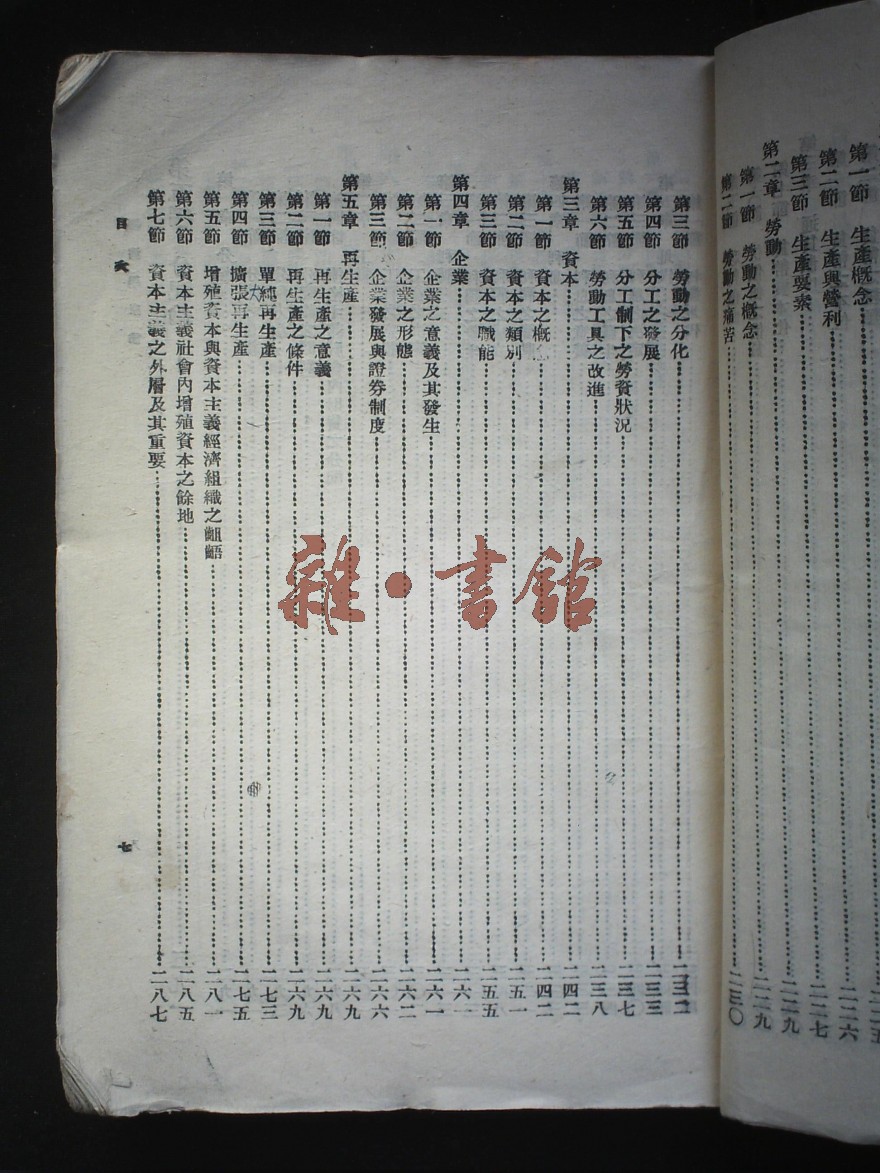 第一節 生產概念
第二節 生產與營利 二二六
第三節 生產要素 二二七
第二章 勞動 二二九
第一節 勞動之概念 二二九
第二節 勞動之痛苦 二三〇
第三節 勞動之分化 二三二
第四節 分工之發展 二三三
第五節 分工制下之勞資狀況 二三七
第六節 勞動工具之改進 二三八
第三章 資本 二四二
第一節 資本之概 二四二
第二節 資本之類別 二五一
第三節 資本之職能 二五五
第四章 企業 二六一
第一節 企業之意義及其發生 二六一
第二節 企業之形態 二六二
第三節 企業發展與證券制度 二六六
第五章 再生產 二六九
第一節 再生產之意義 二六九
第二節 再生產之條件 二六九
第三節 單純再生產 二七三
第四節 擴張再生產 二七五
第五節 增殖資本與資本主義經濟組織之齟齬 二八一
第六節 資本主義社會內增殖資本之餘地 二八五
第七節 資本主義之外層及其重要 二八七
目次 七
雜·書館